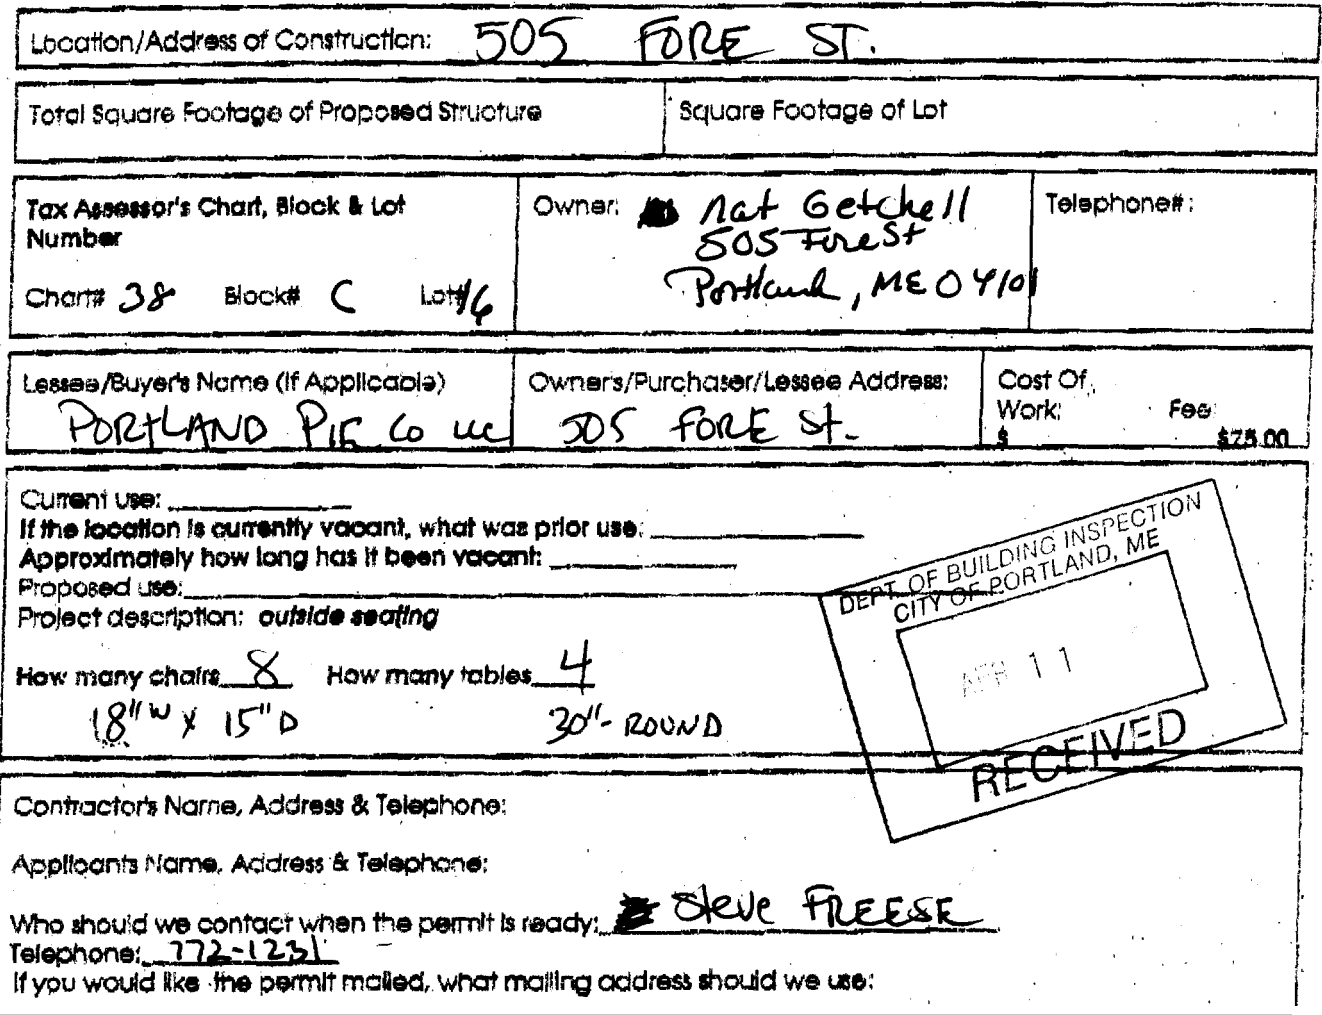 Location/Address of Construction: 505 FORE ST.
Total Square Footage of Proposed Structure Square Footage of Lot
Tax Assessor's Chart, Block & Lot
Number
Chart# 38 Block# C Lot# 16
Owner: Nat Getchell
505 Fore St
Portland, ME 04101
Telephone#:
Lessee/Buyer's Name (If Applicable)
PORTLAND PIE Co LLC
Owner's/Purchaser/Lessee Address:
505 FORE St.
Cost Of
Work: Fee:
$ $75.00
Current use:
If the location is currently vacant, what was prior use:
Approximately how long has it been vacant:
Proposed use:
Project description: outside seating
How many chairs 8 How many tables 4
18" W X 15" D 30"- ROUND
DEPT. OF BUILDING INSPECTION
CITY OF PORTLAND, ME
APR 11
RECEIVED
Contractor's Name, Address & Telephone:
Applicants Name, Address & Telephone:
Who should we contact when the permit is ready: Steve FREESE
Telephone: 772-1231
If you would like the permit mailed, what mailing address should we use: